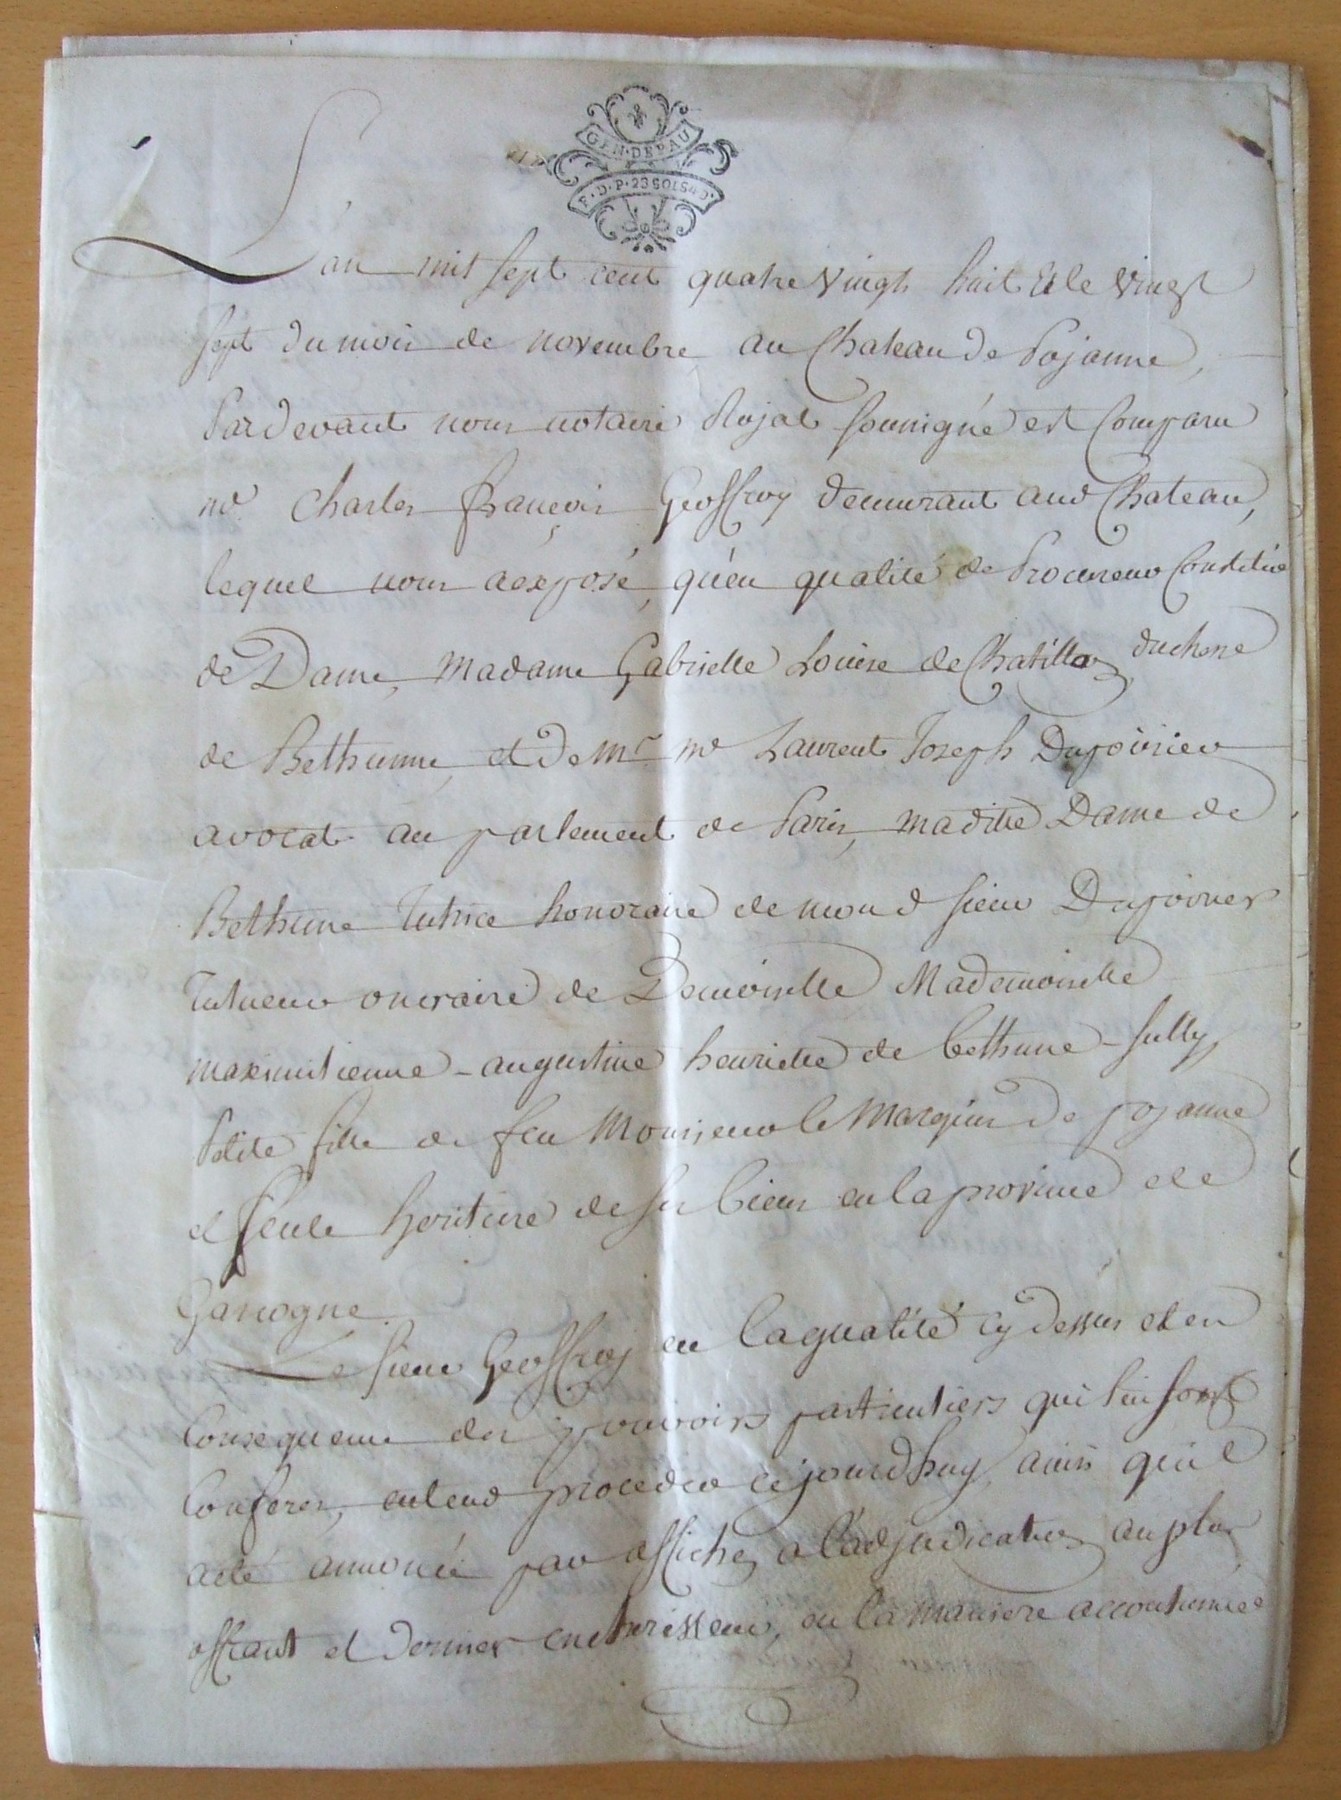 GEN·DE PAU
F·D·P·23SOLS4D·
L'an mil sept cent quatre vingt huit et le vingt
sept du mois de novembre au Chateau de Pojanne,
Pardevant nous notaire Royal soussigné est Comparu
mr. Charles françois Geoffroy demeurant aud Chateau,
lequel nous a exposé, qu'en qualité de Procureur Constitué
de Dame, Madame Gabrielle Louise de Chatillon duchesse
de Bethunne, et de Mr. me Laurent Joseph Dupoirier
avocat au parlement de Paris, madite Dame de
Bethune tutrice honoraire de mond sieur Dupoirier
Tuteur oneraire de Demoiselle Mademoiselle
maximilienne - augustine henriette de bethune - sully,
Petite fille de feu Monsieur le Marquis de pojanne
et seule heritiere de ses biens en la province de
Gascogne.
Le sieur Geoffroy en la qualité cy dessus et en
Consequence des pouvoirs particuliers qui lui sont
Conferes, entend proceder ce jourd'huy, ainsi qu'il
a été annoncé par affiches a l'adjudication au plus
offrant et dernier encherisseur, en la maniere accoutumée